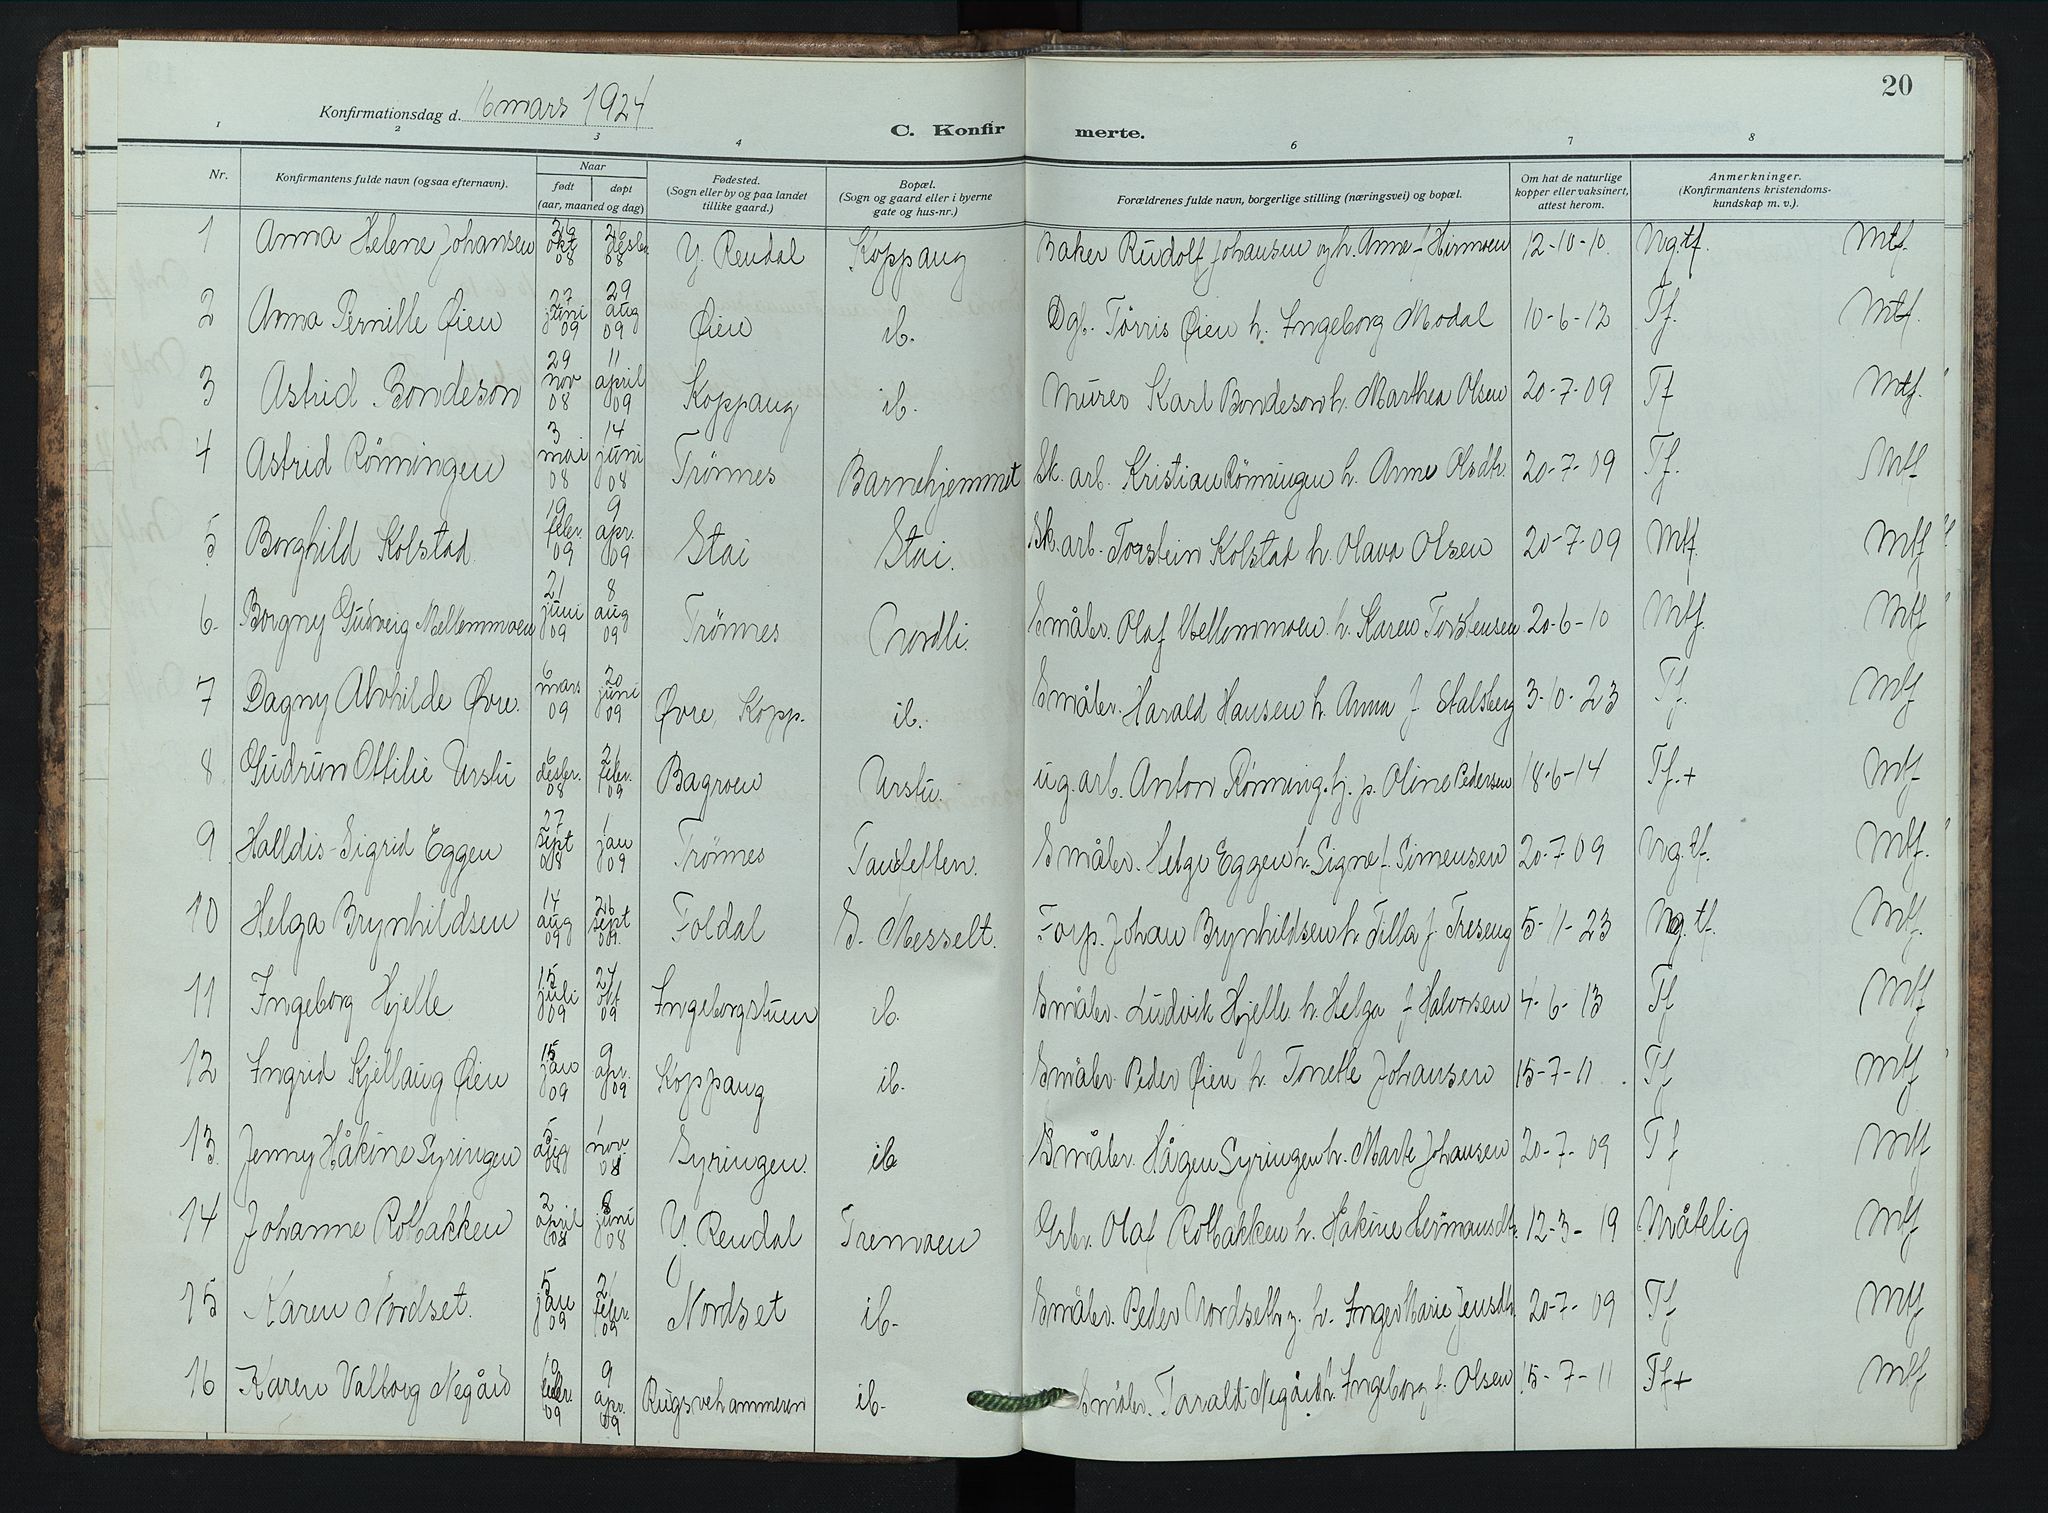 20
Konfirmationsdag d. 16 mars 1924
C. Konfirmerte.
1 2 3 4 6 7 8
Nr. Konfirmantens fulde navn (ogsaa efternavn). Naar født døpt (aar, maaned og dag) Fødested. (Sogn eller by og paa landet tillike gaard.) Bopæl. (Sogn og gaard eller i byerne gate og hus-nr.) Forældrenes fulde navn, borgerlige stilling (næringsvei) og bopæl. Om hat de naturlige kopper eller vaksinert, attest herom. Anmerkninger. (Konfirmantens kristendoms-kundskap m. v.).
1 Anna Helene Johansen 26 okt 08 26 desbr 08 Y. Rendal Koppang Baker Rudolf Johansen og h. Anne f. Hirmoen 12-10-10. Mg.tf. Mtf.
2 Anna Pernille Øien 27 juni 09 29 aug 09 Øien ib. Dgb. Tørris Øien h. Ingeborg Modal 10-6-12 Tf. Mtf.
3 Astrid Bondeson 29 nov 08 11 april 09 Koppang ib. Murer Karl Bondeson h. Marthea Olsen 20-7-09 Tf Mtf.
4 Astrid Rönningen 3 mai 08 14 juni 08 Trönnes Barnehjemmet Sk. arb. Kristian Rönningen h. Anne Olsdtr. 20-7-09 Tf. Mtf
5 Borghild Kolstad 19 febr 09 9 apr. 09 Stai Stai. Sk. arb. Torstein Kolstad h. Olava Olsen 20-7-09 Mtf. Mtf
6. Borgny Gudveig Mellemmoen 21 juni 09 8 aug 09 Trönnes Nordli. Småbr. Olaf Mellemmoen h. Karen Torstensen 20-6-10 Mtf. Mtf
7 Dagny Alvhilde Øvre. 6 mars 09 20 juni 09 Øvre, Kopp. ib. Småbr. Harald Hansen h. Anna f. Stalsberg 3-10-23 Tf. Mtf
8 Gudrun Ottilie Urstu 6 desbr. 08 21 febr. 09 Bagroen Urstu. ug. arb. Anton Rönning. hj. p. Oline Pedersen 18-6-14 Tf.+ Mtf
9 Halldis Sigrid Eggen 27 sept 08 1 jan 09 Trönnes Småbr. Helge Eggen h. Signe f. Simensen 20-7-09 Mg.tf. Mtf.
10 Helga Brynhildsen 14 aug 09 26 sept 09. Foldal S. Messelt. Forp. Johan Brynhildsen h. Tilla f. Treseng 5-11-23 Mg. tf. Mtf.
11 Ingeborg Hjelle 15 juli 09 24 okt 09 Ingeborgstuen ib. Småbr. Ludvik Hjelle. h. Helga f Halvorsen 4-6-13 Tf Mtf
12 Ingrid Kjellaug Øien 15 jan 09 9 apr. 09 Koppang ib. Småbr. Peder Øien h. Tonette Johansen 15-7-11. Tf Mtf
13. Jenny Håkine Syringen 5 aug 08 1 nov 08 Syringen. ib Småbr. Hågen Syringen h. Marte Johansen 20-7-09 Tf Mtf
14 Johanne Rotbakken 2 april 08 8 juni 08 Y. Rendal Tremoen Grbr. Olaf Rotbakken h. Håkine Hermansdtr. 12-3-19 Måtelig Mtf
15 Karen Nordset. 5 jan 09 21 febr. 09 Nordset ib. Småbr. Peder Nordseth h. Inger Marie Jensdtr 20-7-09 Tf Mtf
16 Karen Valborg Negård febr. 09 9 apr. 09 Rugsvehammeren ib. Småbr. Tarald Negård h. Ingeborg f. Olsen 15-7-11 Tf+ Mtf